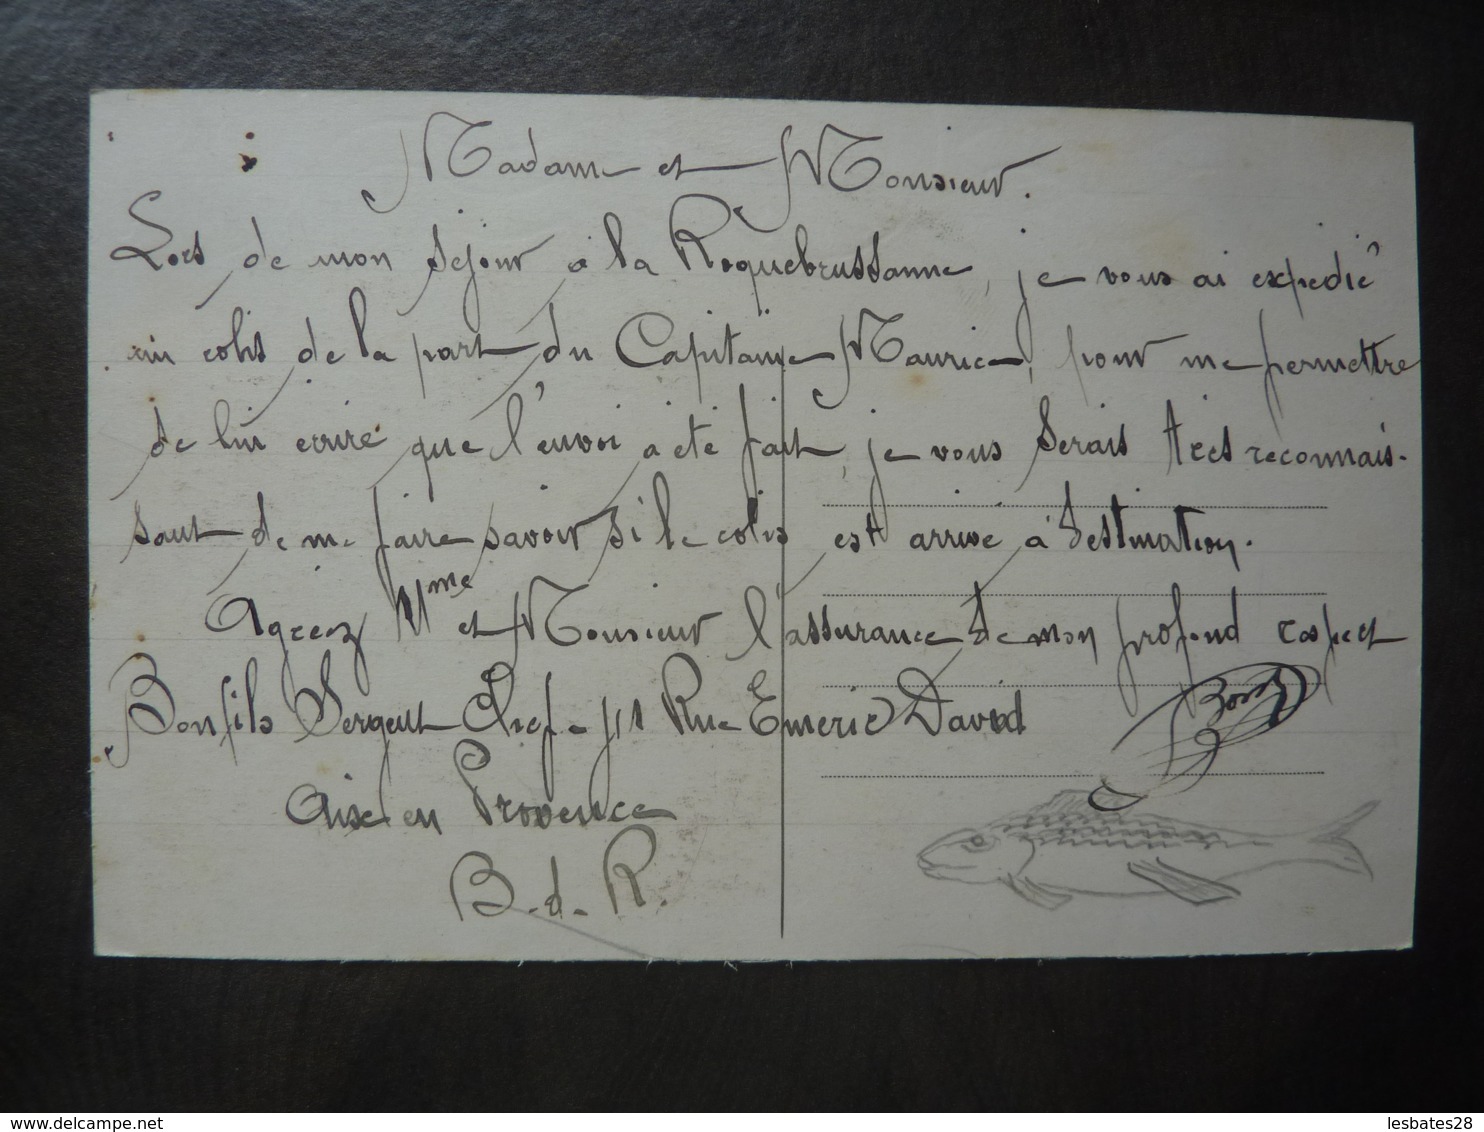 Madame et Monsieur.
Lors de mon séjour à la Roquebrussanne, je vous ai expédié
un colis de la part du Capitaine Maurice, pour me permettre
de lui écrire que l'envoi a été fait, je vous serais très reconnais-
sant de me faire savoir si le colis est arrivé à destination.
Agréez Mme et Monsieur l'assurance de mon profond respect
Bonfils Sergent Chef - 11 Rue Emeric David
Aix en Provence
B.d.R.
lesbates28